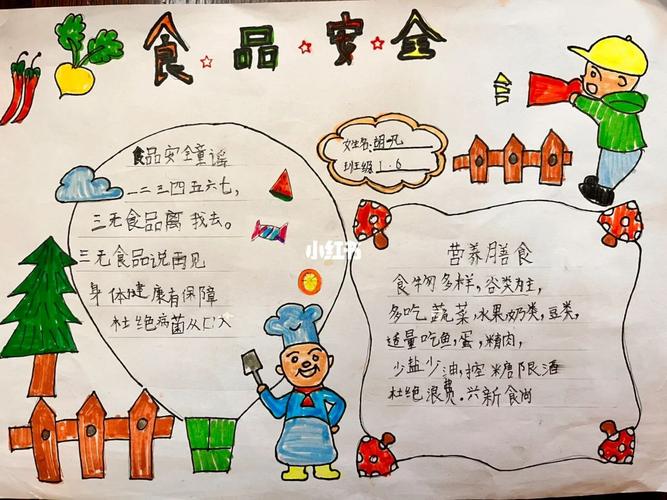 食品安全
姓名:胡
班级1.6
食品安全童谣
一二三四五六七,
三无食品离我去。
三无食品说再见
身体健康有保障
杜绝病菌从口入
小红书
营养膳食
食物多样,谷类为主,
多吃蔬菜,水果奶类,豆类,
适量吃鱼,蛋,精肉,
少盐少油,控糖限酒
杜绝浪费.兴新食尚